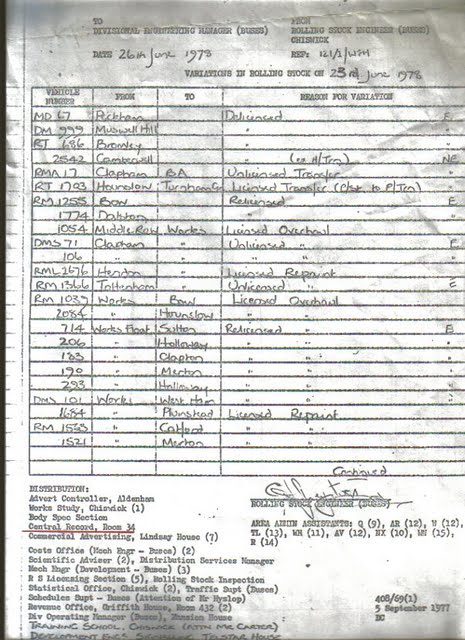 TO FROM
DIVISIONAL ENGINEERING MANAGER (BUSES) ROLLING STOCK ENGINEER (BUSES)
CHISWICK
DATE 26th June 1978 REF: 121/1/WSH
VARIATIONS IN ROLLING STOCK ON 23rd June 1978
VEHICLE NUMBER FROM TO REASON FOR VARIATION
MD 67 Peckham Delicensed E
DM 999 Muswell Hill " "
RT 686 Bromley " "
2542 Camberwell " (ex H/Trn) NE
RMA 17 Clapham BA Unlicensed Transfer
RT 1793 Hounslow Turnham Gn Licensed Transfer
RM 1255 Bow Relicensed E
1774 Dalston " "
1054 Middle Row Works Licensed Overhaul
DMS 71 Clapham " Unlicensed " E
106 " " " " "
RML 2676 Hendon " Licensed Repaint
RM 1366 Tottenham " Unlicensed " E
RM 1037 Works Bow Licensed Overhaul
2084 " Hounslow " "
714 Works Float Sutton Relicensed " E
206 " Holloway " " "
183 " Clapton " " "
190 " Merton " " "
293 " Holloway " " "
DMS 101 Works West Ham " " "
1684 " Plumstead Licensed Repaint
RM 1533 " Catford " "
1521 " Merton " "
Continued
DISTRIBUTION:
Advert Controller, Aldenham
Works Study, Chiswick (1)
ROLLING STOCK ENGINEER (BUSES)
Body Spec Section
Central Record, Room 34
Commercial Advertising, Lindsey House (7)
AREA ADMIN ASSISTANTS: Q (9), AR (12), W (12),
TL (13), WH (11), AV (12), NX (10), HU (15),
R (14)
Costs Office (Mech Engr - Buses) (2)
Scientific Adviser (2), Distribution Services Manager
Mech Engr (Development - Buses) (3)
R S Licensing Section (5), Rolling Stock Inspection
Statistical Office, Chiswick (2), Traffic Supt (Buses)
Schedules Supt - Buses (Attention of Mr Hyslop) 408/69(1)
Revenue Office, Griffith House, Room 432 (2) 5 September 1977
Div Operating Manager (Buses), Mansion House DC
TRAINING SCHOOL, CHISWICK (ATTN MR CARTER)
DEVELOPMENT ENGS TELSTAR HOUSE